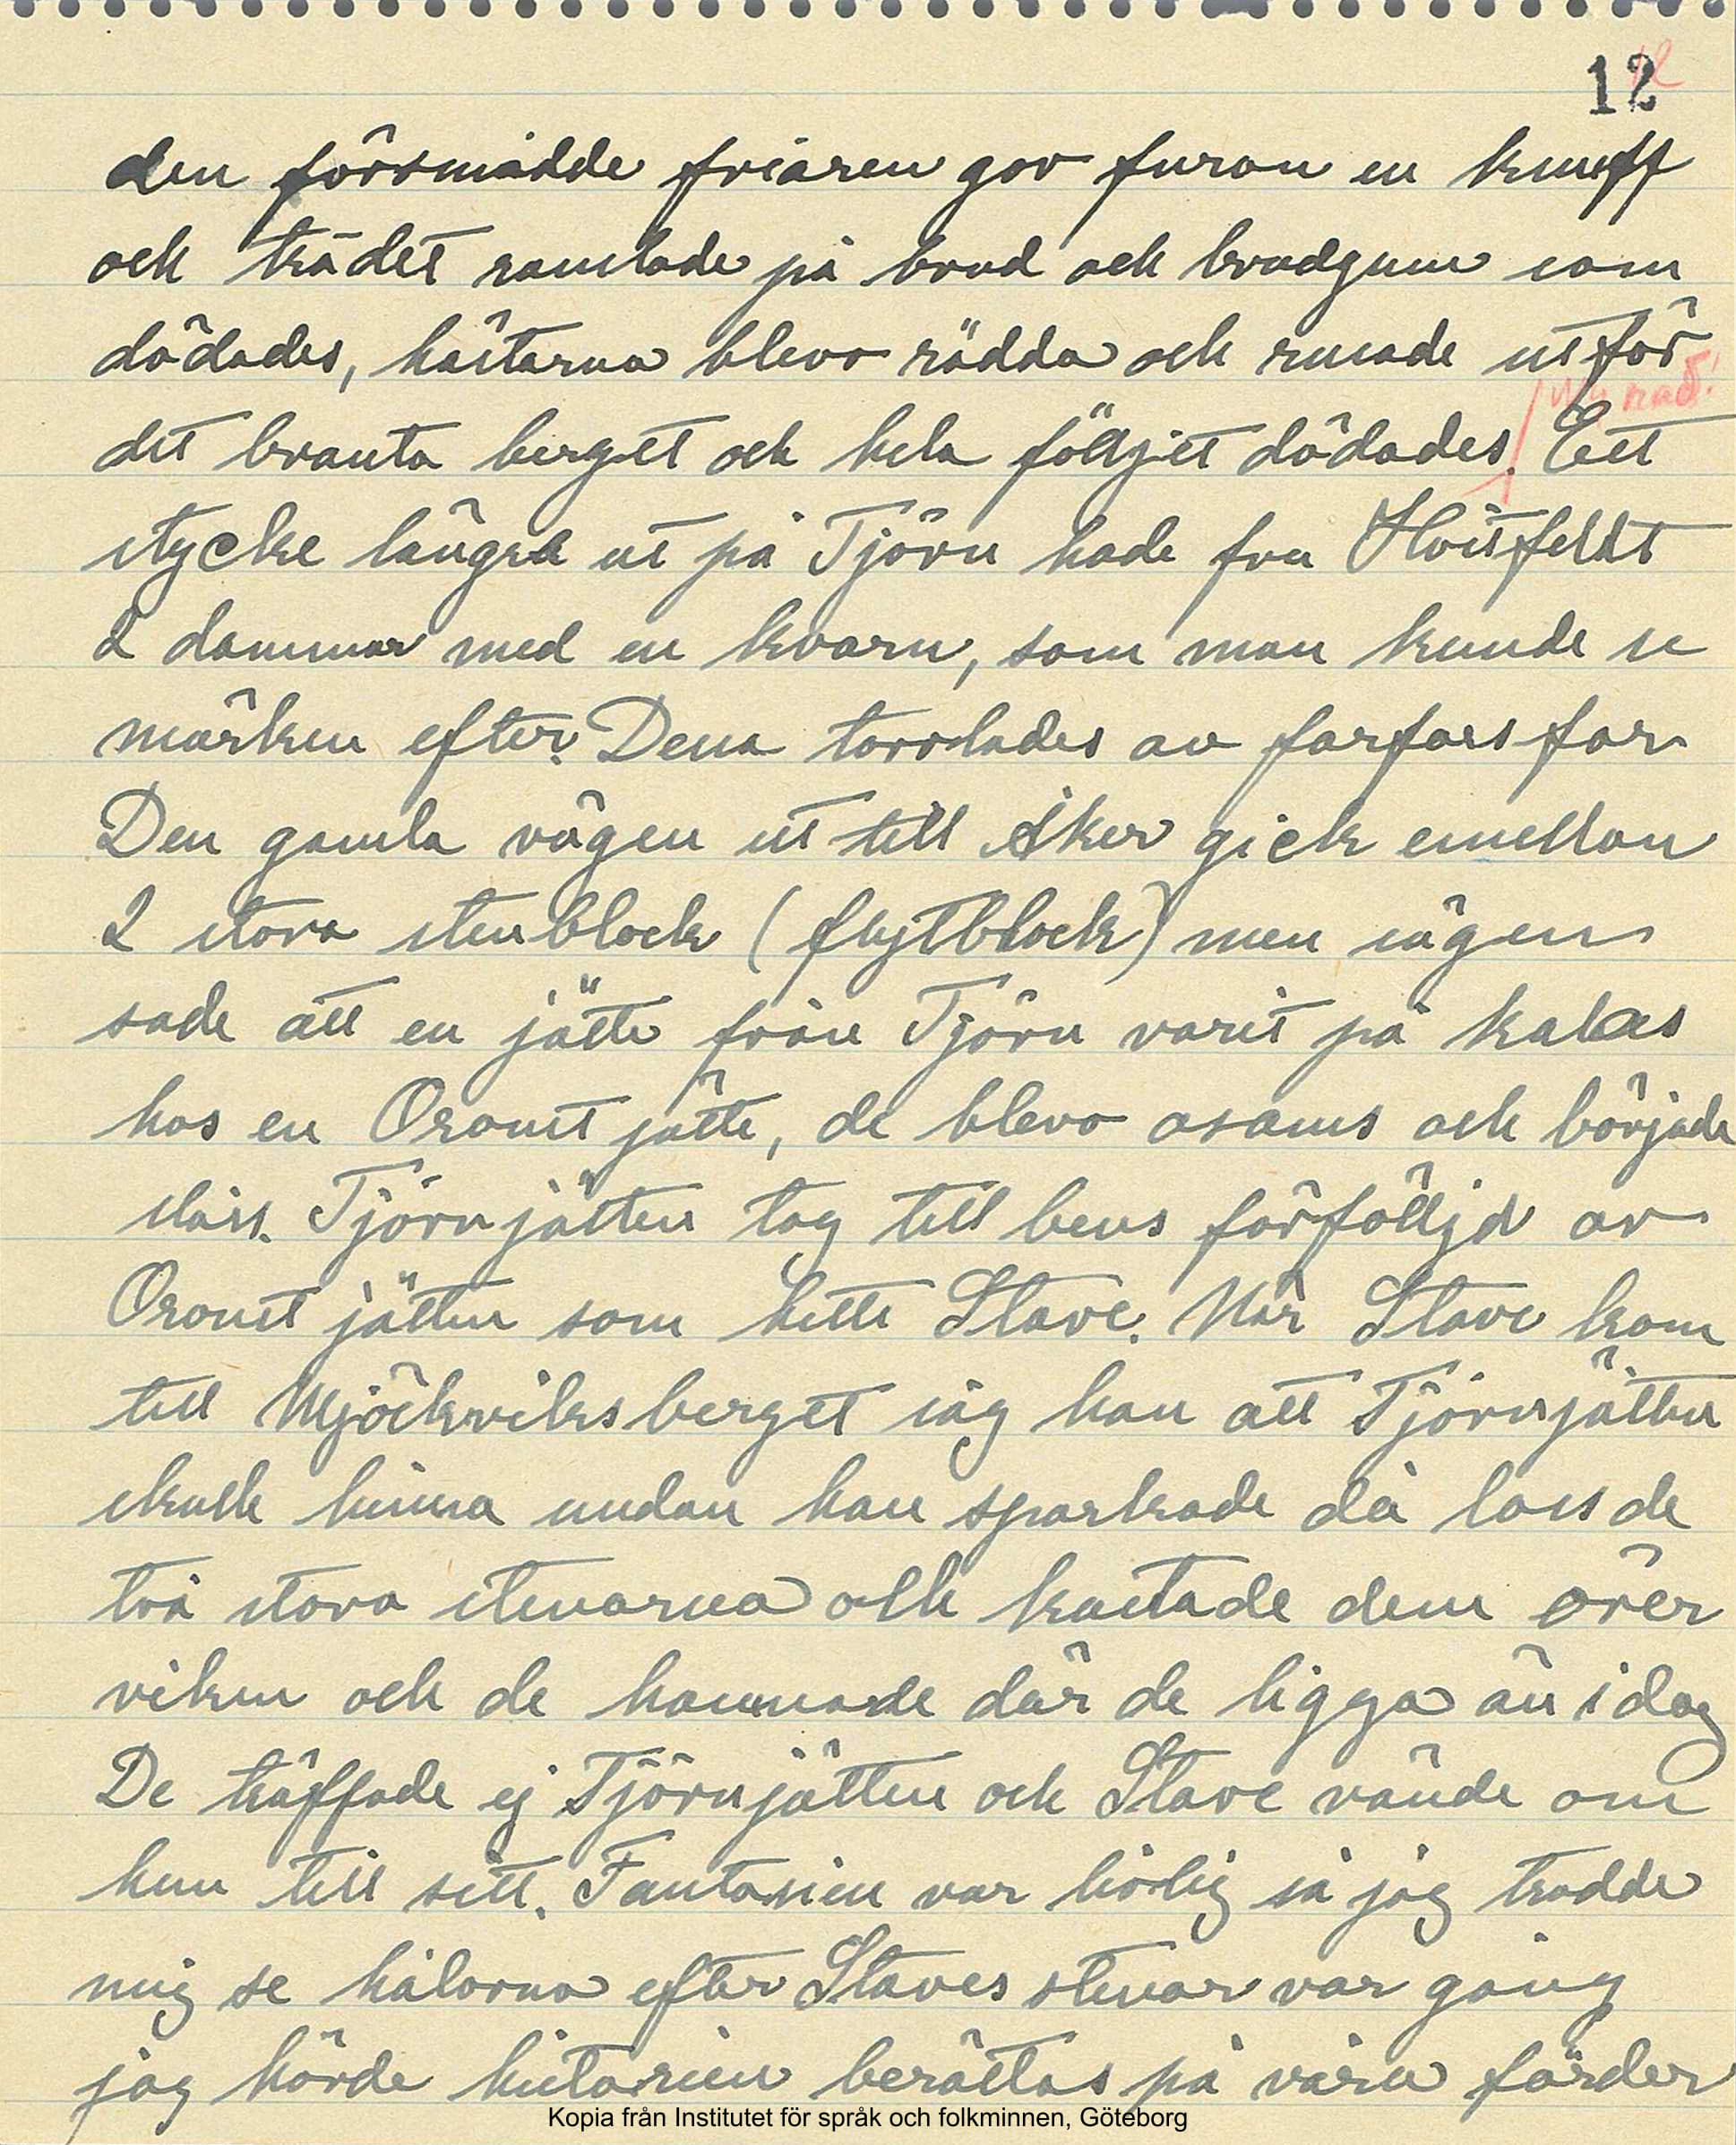 12
12
den försmådde friaren gav furan en knuff
och trädet ramlade på brud och brudgum som
dödades, hästarna blevo rädda och rusade utför
Ny rad!
det branta berget och hela föl̈jet dödades. Ett
stycke längre ut på Tjörn hade fru Hvitfeldt
2 dammar med en kvarn, som man kunde se
märken efter. Dena torrlades av farfars far
Den gamla vägen ut till Åker gick emellan
2 stora stenblock (flytblock) men sägen
sade att en jätte från Tjörn varit på kalas
hos en Oroust jätte, de blevo osams och började
slåss. Tjörnjätten tog till bens förföljd av
Oroust jätten som hette Stave. När Stave kom
till Mjöckviksberget såg han att Tjörnjätten
skulle hinna undan han sparkade då loss de
två stora stenarna och kastade dem över
viken och de hamnade där de ligga än i dag
De träffade ej Tjörnjätten och Stave vände om
hem till sitt. Fantasien var livlig så jag trodde
mig se hålorna efter Staves stenar var gång
jag hörde historien berättas på våra färder
Kopia från Institutet för språk och folkminnen, Göteborg